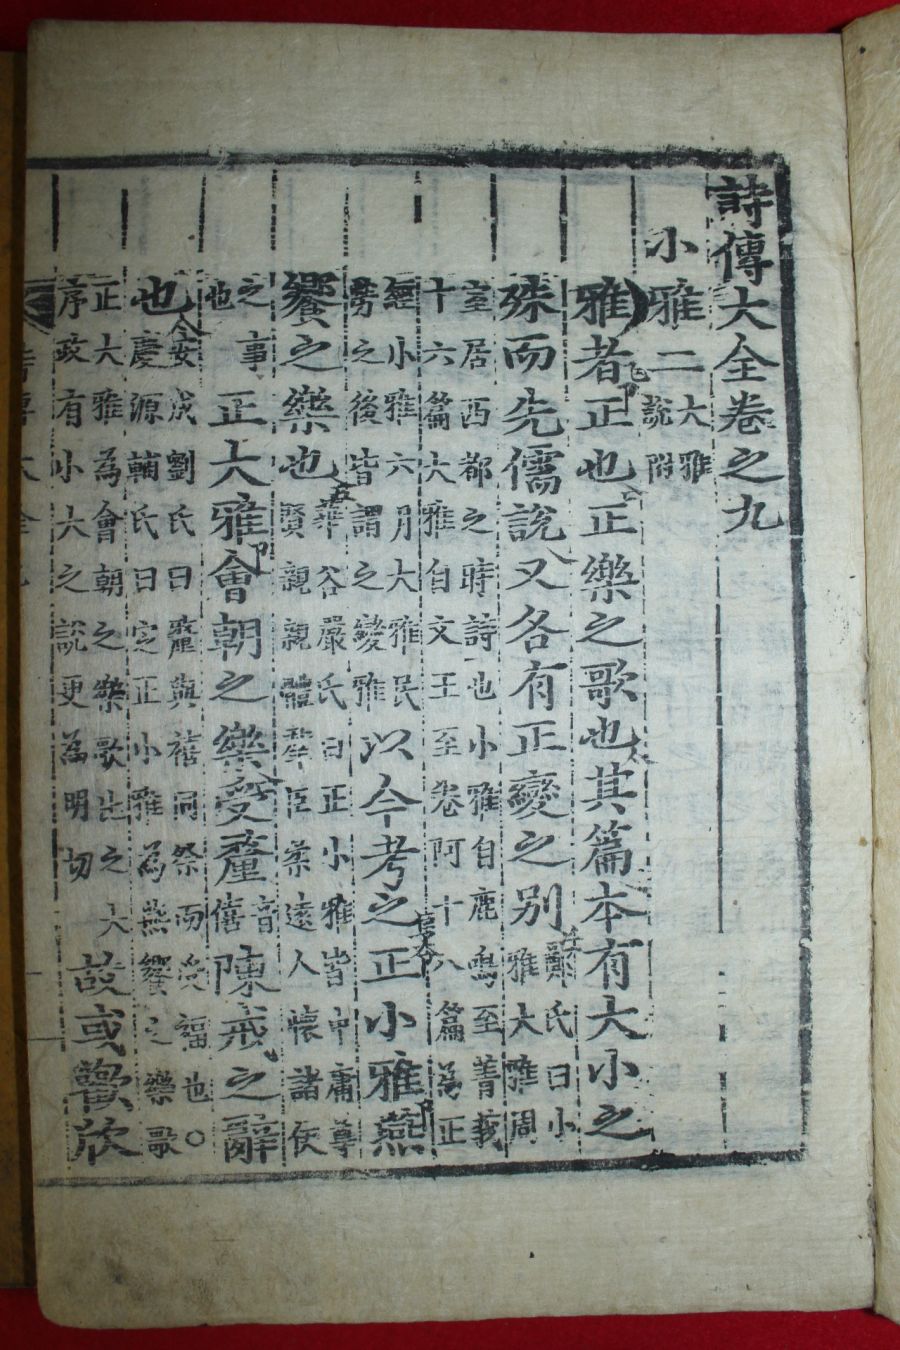 詩傳大全卷之九
小雅二大雅說附
雅者正也正樂之歌也其篇本有大小之
殊而先儒說又各有正變之別鄭氏曰小雅大雅周
室居西都之時詩也小雅自鹿鳴至菁莪十六篇大雅自文王至卷阿十八篇為正
經小雅六月大雅民勞之後皆謂之變雅以今考之正小雅燕
饗之樂也華谷嚴氏曰正小雅皆中庸尊賢親親體羣臣柔遠人懷諸侯
之事也正大雅會朝之樂受釐音僖陳戒之辭
也安成劉氏曰釐與禧同祭而受福也○慶源輔氏曰定正小雅為燕饗之樂歌
正大雅為會朝之樂歌比之大序政有小大之說更為明切故或歡欣